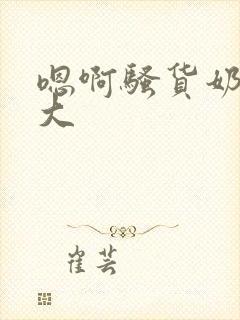 嗯啊骚货奶
大
崔芸